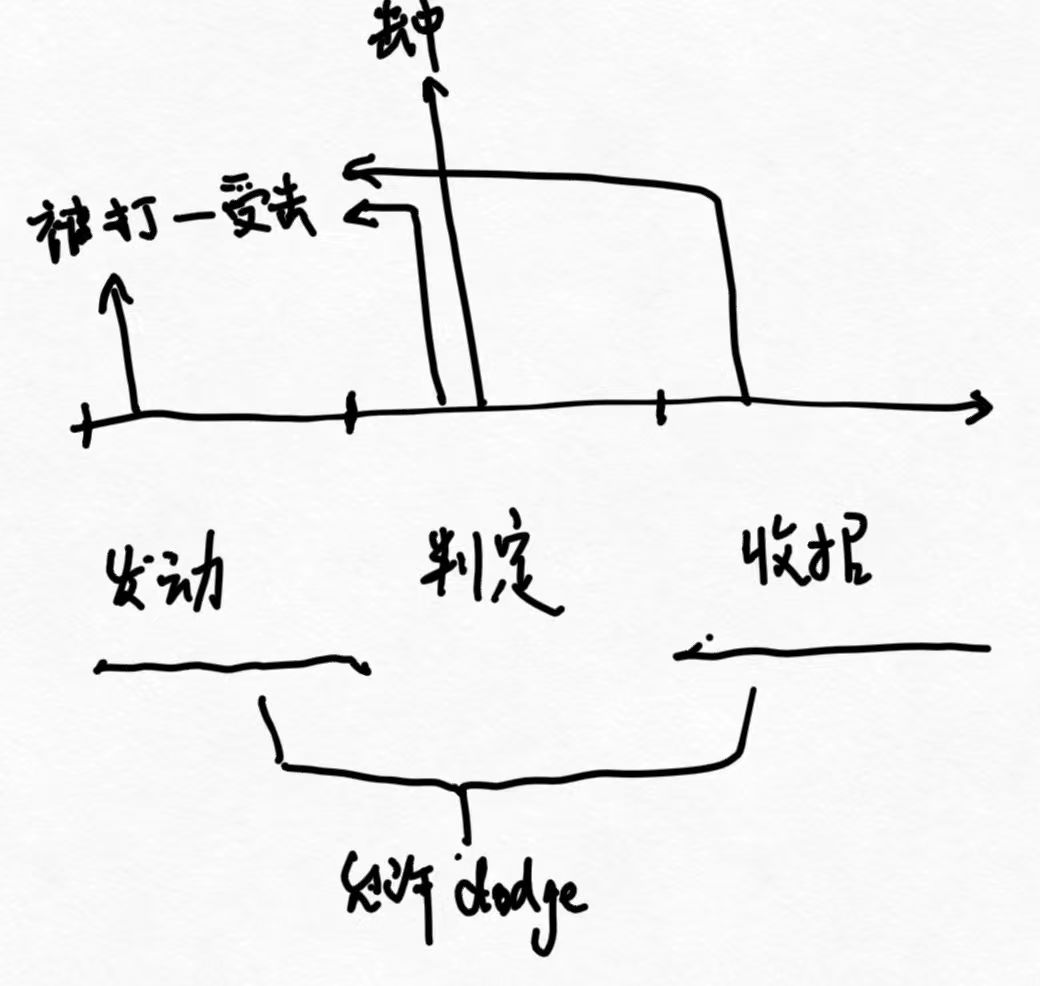 击中
被打一受击
发动
判定
收招
允许 dodge